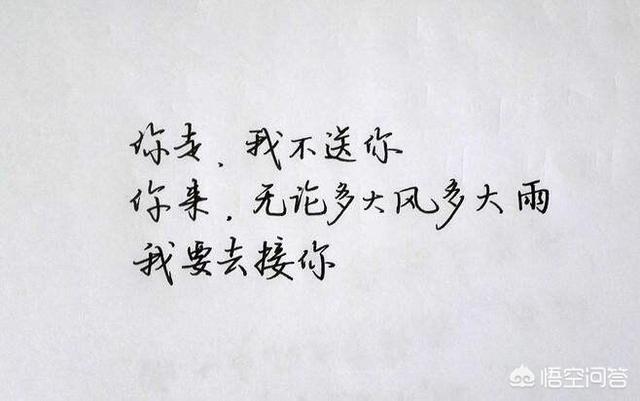 你走，我不送你
你来，无论多大风多大雨
我要去接你
悟空问答